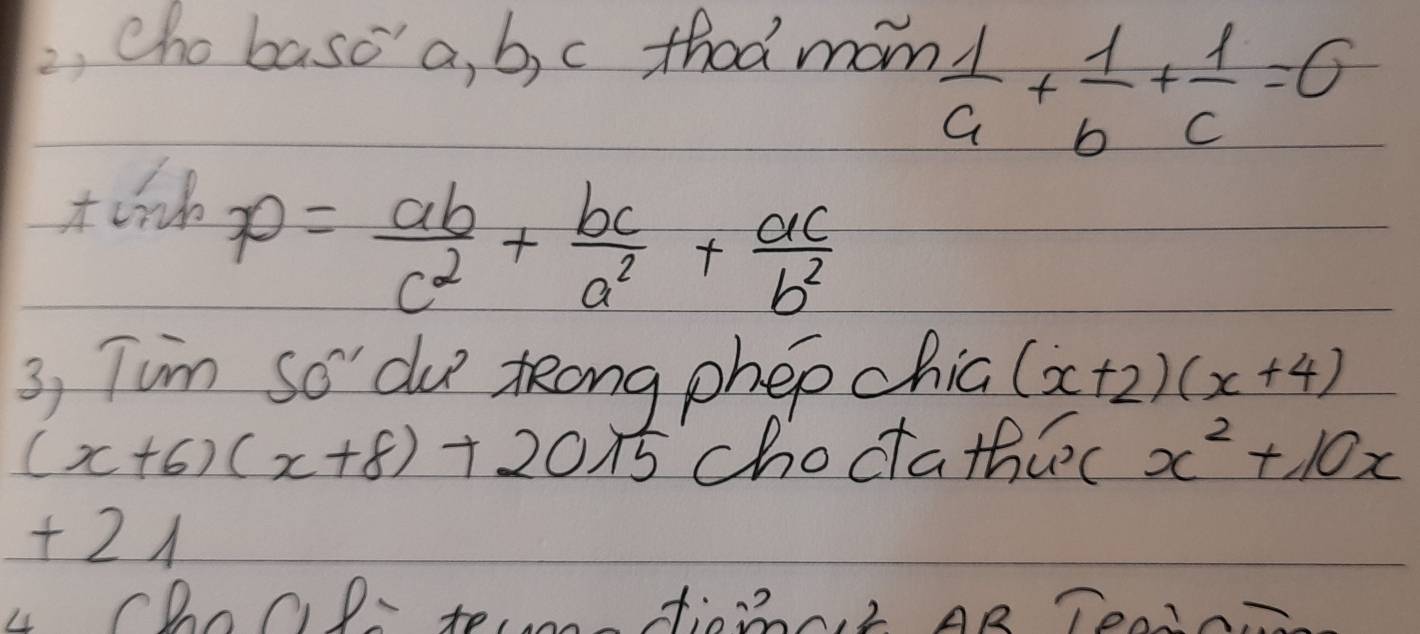 2, Cho ba số a, b, c thoả mãn 1/a + 1/b + 1/c = 0
tính p = ab/c² + bc/a² + ac/b²
3, Tìm số dư trong phép chia (x+2)(x+4)
(x+6)(x+8) + 2015 cho đa thức x² + 10x
+ 21
4 Cho điểm AB